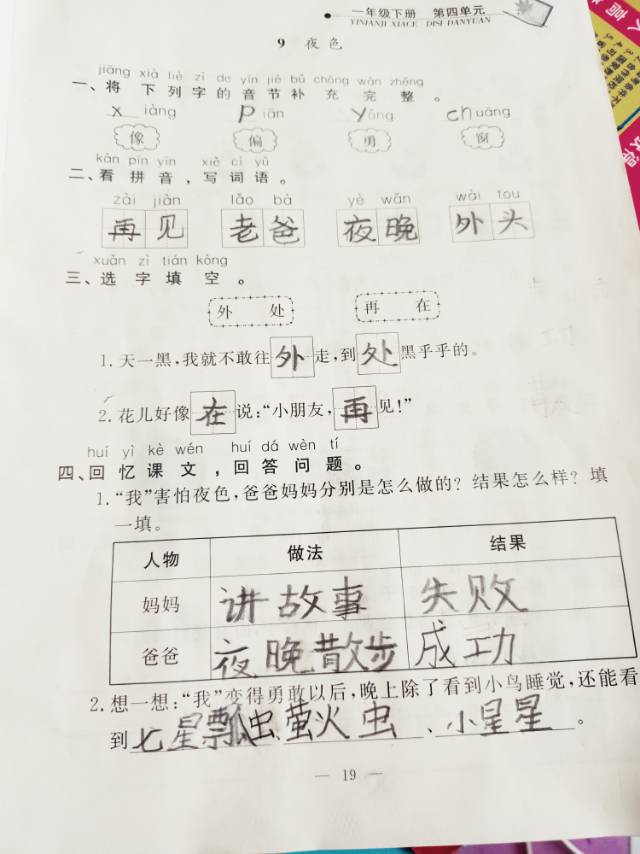 一年级下册 第四单元
YINIANJI XIACE DISI DANYUAN
9 夜色
jiāng xià liè zì de yīn jié bǔ chōng wán zhěng
一、将下列字的音节补充完整。
x iàng p iān y ǒng ch uāng
像 偏 勇 窗
kàn pīn yīn xiě cí yǔ
二、看拼音,写词语。
zài jiàn lǎo bà yè wǎn wài tou
再见 老爸 夜晚 外头
xuǎn zì tián kòng
三、选字填空。
外 处 再 在
1.天一黑,我就不敢往外走,到处黑乎乎的。
2.花儿好像在说:“小朋友,再见!”
huí yì kè wén huí dá wèn tí
四、回忆课文,回答问题。
1.“我”害怕夜色,爸爸妈妈分别是怎么做的?结果怎么样?填
一填。
人物 做法 结果
妈妈 讲故事 失败
爸爸 夜晚散步 成功
2.想一想:“我”变得勇敢以后,晚上除了看到小鸟睡觉,还能看
到七星瓢虫、萤火虫、小星星。
— 19 —